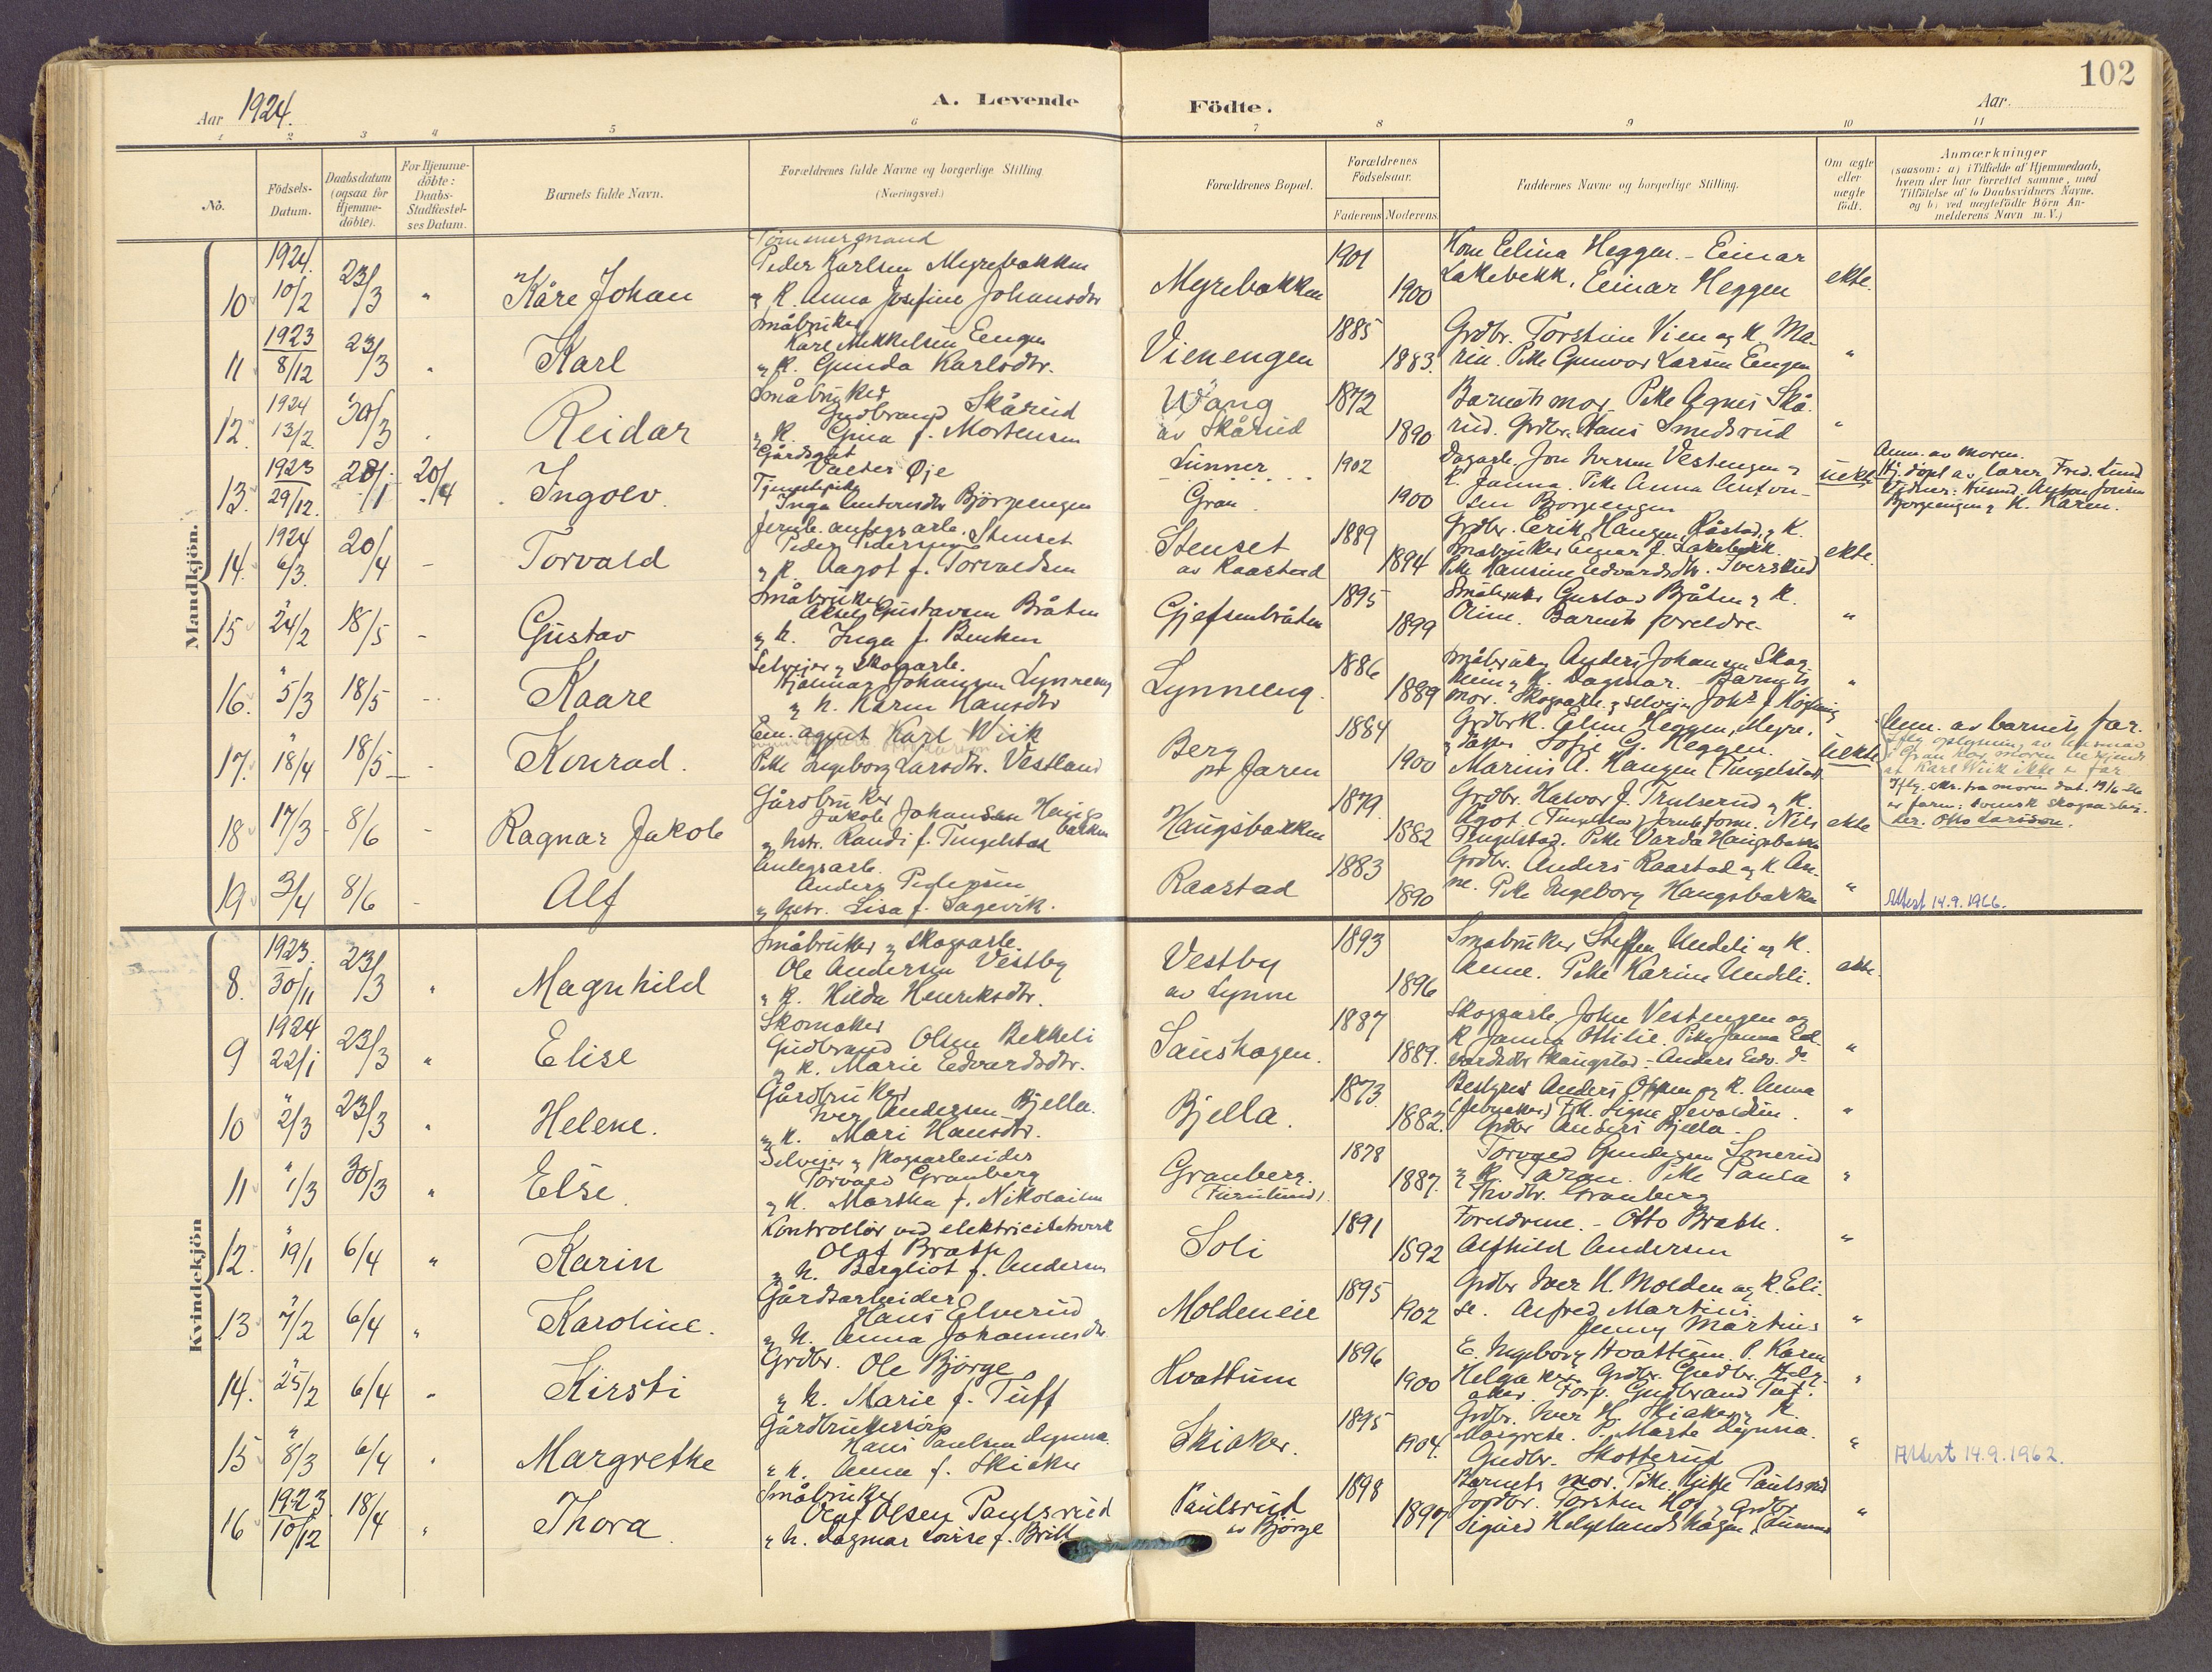 102
Aar 1924.
A. Levende
Födte.
Aar.
1 2 3 4 5 6 7 8 9 10 11
No.
Födsels-
Datum.
Daabsdatum
(ogsaa for
Hjemme-
döbte).
For Hjemme-
döbte:
Daabs-
Stadfæstel-
ses Datum.
Barnets fulde Navn.
Forældrenes fulde Navne og borgerlige Stilling
(Næringsvei.)
Forældrenes Bopæl.
Forældrenes
Födselsaar.
Faderens Moderens
Faddernes Navne og borgerlige Stilling.
Om ægte
eller
uægte
födt.
Anmærkninger
(saasom: a) i Tilfælde af Hjemmedaab,
hvem der har forrettet samme, med
Tilföielse af to Daabsvidners Navne,
og b) ved uægtefödte Börn An-
melderens Navn m. V.)
Mandkjön.
10 1924. 10/2 23/3 " Kåre Johan
Tömmermand
Peder Karlsen Myrebakken
og K. Anna Josefine Johansdtr
Myrebakken 1901 1900
Kone Elina Heggen. - Einar
Lakebekk, Einar Heggen
ekte.
11 1923 8/12 23/3 " Karl
Småbruker
Karl Mikkelsen Eengen
og K. Gunda Karlsdtr.
Vienengen 1885 1883.
Grdbr. Torstein Vien og K. Ma-
rin. Pike Gunvor Larsen Eengen
"
12. 1924 13/2 30/3 " Reidar
Småbruker
Gudbrand Skårud
og K. Gina f. Mortensen
Wang
av Skårud 1872 1890
Barnets mor. Pike Agnes Skå-
rud. Grdbr. Hans Smedsrud
"
13. 1923 29/12. 20/4 Ingolv.
Gårdsgut
Valter Øje
Tjenestepike
Inga Antonsdtr Bjørgeengen
Lunner
Gran 1902 1900
Dagarb. Jon Iversen Vestengen og
K. Janna. Pike Anna Anton-
sen Bjørgeengen
uekte
Anm. av moren.
Hj. døpt av lærer Fred. Lund
Vidner: Husmd. Anton Jonsen
Bjørgeengen og K. Karen.
14. 1924 6/3. 20/4 - Torvald
Jernb. anlegsarb. Stenset
Peder Pedersen
og K. Aagot f. Torvaldsen
Stenset
av Raastad 1889 1894
Grdbr. Erik Haugen, Råstad, og K.
Småbruker Einar J. Lakebekk.
Pike Hansine Edvardsdtr. Iversrud
ekte.
15 " 24/2 18/5 - Gustav
Småbruker
Aksel Gustavsen Bråten
og K. Inga f. Benken
Gjefsenbråten 1895 1899
Småbruker Gustav Bråten og K.
Oline. Barnets foreldre.
"
16. " 5/3 18/5 - Kaare
Selveier og skogsarb.
Hjalmar Johansen Lynneeng
og K. Karen Hansdtr
Lynneeng. 1886 1889
Småbruker Anders Johansen Skog-
heim og K. Dagmar. Barnets
mor. Skogsarb. og selveier
"
17. " 18/4 18/5 - Konrad.
Em. agent Karl Wiik
Pike Ingeborg Larsdtr. Vestland
Berg
pr Jaren 1884 1900
Grdbrk. Elina Heggen, Myre,
Sofie G. Heggen.
Marius A. Haugen (Tingelstad)
uekte
Anm. av barnets far.
Karl Wiik ikke er far
Iflg. skr. fra moren dat. 19/6-26
er faren: svensk skogsarbei-
der. Otto Larsson.
18 17/3 8/6 - Ragnar Jakob
Gårdbruker
Jakob Johansen Haugs-
bakken
og hstr. Randi f. Tingelstad
Haugsbakken 1879. 1882
Grdbr. Halvor J. Trulserud og K.
Agot. (Tingelstad) Nils
Tingelstad. Pike Varda Haugsbakken
ekte
19. 3/4 8/6 - Alf
Anlegsarb.
Anders Pedersen
og hstr. Lisa f. Sagevik.
Raastad 1883 1890
Grdbr. Anders Raastad og K. An-
ne. Pike Ingeborg Haugsbakken
"
Attest 14.9.1966.
Kvindekjön
8. 1923. 30/11 23/3 " Magnhild
Småbruker og skogsarb.
Ole Andersen Vestby
og K. Hilda Henriksdtr.
Vestby
av Lynne 1893 1896
Småbruker Steffen Undeli og K.
Anne. Pike Karine Undeli.
ekte.
9 1924 22/1 23/3 " Elise
Skomaker
Gudbrand Olsen Bekkeli
og K. Marie Edvardsdtr.
Saushagen. 1887 1889.
Skogsarb. John Vestengen og
K Janna Ottilie. Pike Janna Ed-
vardsdtr Skaugstad - Anders Edv. do
"
10 " 2/3 23/3 " Helene.
Gårdbruker
Iver Andersen Bjella.
og K. Mari Hansdtr.
Bjella. 1873. 1882.
Bestyrer Anders Oppen og K. Anna
Grdbr Anders Bjella.
"
11 " 1/3 30/3 " Else.
Selveier og skogsarbeider
Torvald Granberg
og K. Martha f. Nikolaisen
Granberg.
(Furulund). 1878 1887.
Torvald Gundersen Smerud
og K. Paran. Pike Paula
Thvdtr. Granberg
"
12. " 19/1 6/4 " Karin
Kontrollør ved elektricitetsverk
Olaf Brathe
og K. Bergliot f. Andersen
Soli 1891 1892
Foreldrene. - Otto Brathe.
Alfhild Andersen
"
13 " 7/2 6/4 " Karoline.
Gårdsarbeider
Hans Elverud
og K. Anna Johannesdtr.
Moldeneie 1895 1902
Grdbr Iver H. Molden og K. Eli-
se. Alfred Martins.
Jenny Martins
"
14. " 25/2 6/4 " Kirsti
Grdbr. Ole Bjørge
og K. Marie f. Tuff
Hvattum 1896 1900
E. Ingeborg Hvattum. P. Karen
Helgaker. Grdbr. Gudbr. Helg-
aker. Forp. Gudbrand Tuf.
"
15 " 8/3 6/4 " Margrethe
Gårdbrukersøn
Hans Paulsen Dynna
og K. Anna f. Skiaker
Skiaker. 1895 1904.
Grdbr. Iver H. Skiaker og K.
Margrete. P. Marte Dynna.
Gudbr. Skotterud
"
Attest 14.9.1962.
16 1923 10/12 18/4 " Thora.
Småbruker
Olaf Olsen Paulsrud
og K. Dagmar Lovise f. Brill
Paulsrud
av Bjørge 1898 1897
Barnets mor. Pike Gitte Paulsrud
Jordbr. Torsten Hof og Grdbr
Sigurd Helgelandshagen, Lunner
"